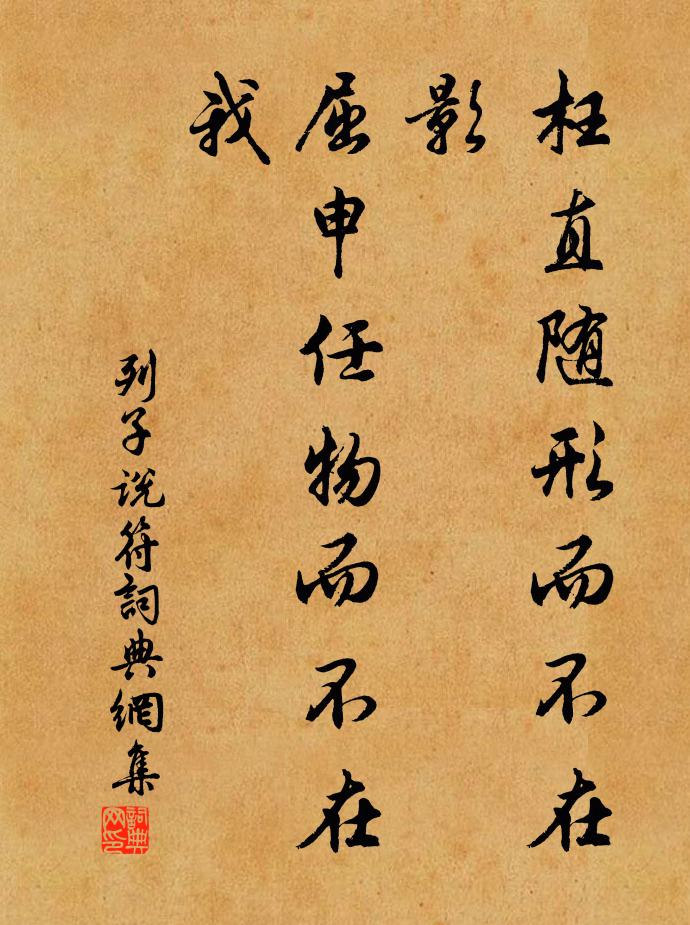 枉直随形而不在
影
屈申任物而不在
我
列子说符詞典網集
詞典网印